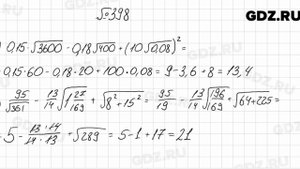 GDZ.RU
№398
) 0,15·√3600 - 0,18√400 + (10√0,08)² =
0,15·60 - 0,18·20 + 100·0,08 = 9 - 3,6 + 8 = 13,4
) √(95/361) - 13/14 √(1 27/169) + √(8² + 15²) = 95/19 - 13/14 √(196/169) + √(64+225) =
5 - (13·14)/(14·13) + √289 = 5 - 1 + 17 = 21
GDZ.RU